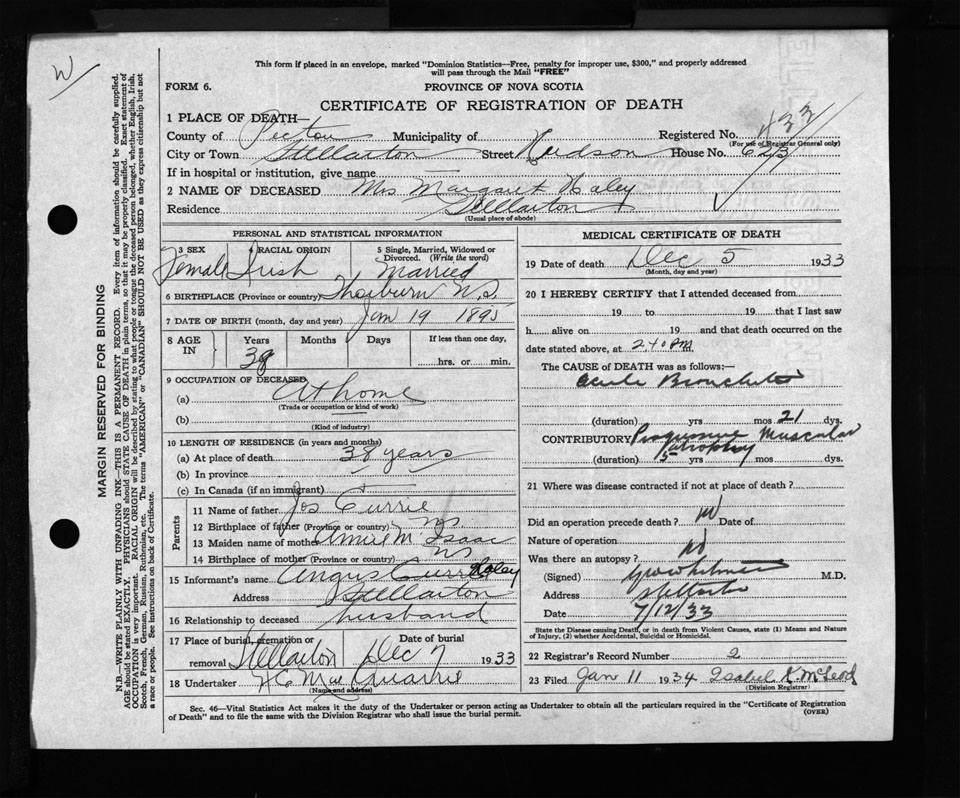 W
This form if placed in an envelope, marked "Dominion Statistics—Free, penalty for improper use, $300," and properly addressed
will pass through the Mail "FREE"
FORM 6.
PROVINCE OF NOVA SCOTIA
CERTIFICATE OF REGISTRATION OF DEATH
1 PLACE OF DEATH—
County of Pictou Municipality of Registered No. 433
(For use of Registrar General only)
City or Town Stellarton Street Hudson House No. 623
If in hospital or institution, give name
2 NAME OF DECEASED Mrs Margaret Haley
Residence Stellarton
(Usual place of abode)
PERSONAL AND STATISTICAL INFORMATION
3 SEX 4 RACIAL ORIGIN 5 Single, Married, Widowed or Divorced. (Write the word)
Female Irish Married
6 BIRTHPLACE (Province or country) Thorburn N.S.
7 DATE OF BIRTH (month, day and year) Jan 19 1895
8 AGE IN Years Months Days If less than one day,
38 hrs. or min.
9 OCCUPATION OF DECEASED
(a) At home
(Trade or occupation or kind of work)
(b)
(Kind of industry)
10 LENGTH OF RESIDENCE (in years and months)
(a) At place of death 38 years
(b) In province
(c) In Canada (if an immigrant)
Parents
11 Name of father Jos Currie
12 Birthplace of father (Province or country) NS
13 Maiden name of mother Annie McIsaac
14 Birthplace of mother (Province or country) NS
15 Informant's name Angus Currie Haley
Address Stellarton
16 Relationship to deceased husband
17 Place of burial, cremation or removal Stellarton Date of burial Dec 7 1933
18 Undertaker MacQuarrie
(Name and address)
MEDICAL CERTIFICATE OF DEATH
19 Date of death Dec 5 1933
(Month, day and year)
20 I HEREBY CERTIFY that I attended deceased from
19 to 19 that I last saw
h alive on 19 and that death occurred on the
date stated above, at 2.40 PM
The CAUSE OF DEATH was as follows:—
Acute Bronchitis
(duration) yrs mos 21 dys.
CONTRIBUTORY Progressive Muscular atrophy
(duration) 5 yrs mos dys.
21 Where was disease contracted if not at place of death?
Did an operation precede death? no Date of
Nature of operation
Was there an autopsy? no
(Signed) M.D.
Address Stellarton
Date 7/12/33
State the Disease causing Death, or in death from Violent Causes, state (1) Means and Nature
of Injury, (2) whether Accidental, Suicidal or Homicidal.
22 Registrar's Record Number 2
23 Filed Jan 11 1934 Isabel K. McLeod
(Division Registrar)
Sec. 46—Vital Statistics Act makes it the duty of the Undertaker or person acting as Undertaker to obtain all the particulars required in the "Certificate of Registration
of Death" and to file the same with the Division Registrar who shall issue the burial permit.
(OVER)
MARGIN RESERVED FOR BINDING
N.B.—WRITE PLAINLY WITH UNFADING INK—THIS IS A PERMANENT RECORD. Every item of information should be carefully supplied.
AGE should be stated EXACTLY. PHYSICIANS should STATE CAUSE OF DEATH in plain terms, so that it may be properly classified. Exact statement of
OCCUPATION is very important. RACIAL ORIGIN will be described by stating to what people or tongue the deceased person belonged, whether English, Irish,
Scotch, French, German, Russian, Ruthenian, etc. The terms "AMERICAN" or "CANADIAN" SHOULD NOT BE USED as they express citizenship but not
a race or people. See instructions on back of Certificate.